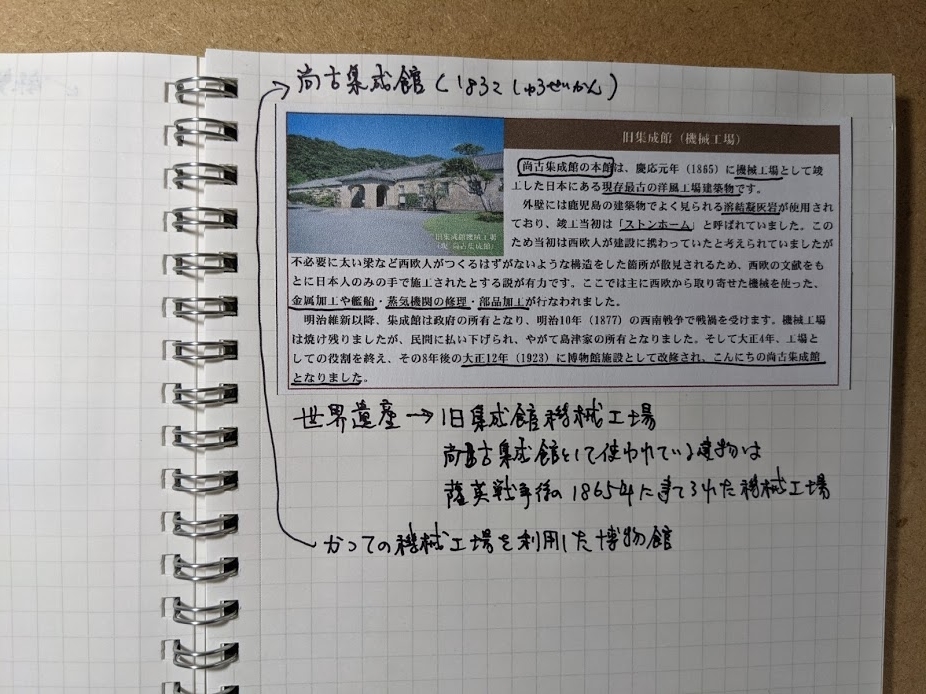 尚古集成館(しょうこしゅうせいかん)
旧集成館(機械工場)
尚古集成館の本館は、慶応元年(1865)に機械工場として竣
工した日本にある現存最古の洋風工場建築物です。
外壁には鹿児島の建築物でよく見られる溶結凝灰岩が使用され
ており、竣工当初は「ストンホーム」と呼ばれていました。この
ため当初は西欧人が建設に携わっていたと考えられていましたが
不必要に太い梁など西欧人がつくるはずがないような構造をした箇所が散見されるため、西欧の文献をも
とに日本人のみの手で施工されたとする説が有力です。ここでは主に西欧から取り寄せた機械を使った、
金属加工や艦船・蒸気機関の修理・部品加工が行なわれました。
明治維新以降、集成館は政府の所有となり、明治10年(1877)の西南戦争で戦禍を受けます。機械工場
は焼け残りましたが、民間に払い下げられ、やがて島津家の所有となりました。そして大正4年、工場と
しての役割を終え、その8年後の大正12年(1923)に博物館施設として改修され、こんにちの尚古集成館
となりました。
旧集成館機械工場
(現 尚古集成館)
世界遺産→旧集成館機械工場
尚古集成館として使われている建物は
薩英戦争後の1865年に建てられた機械工場
かつての機械工場を利用した博物館